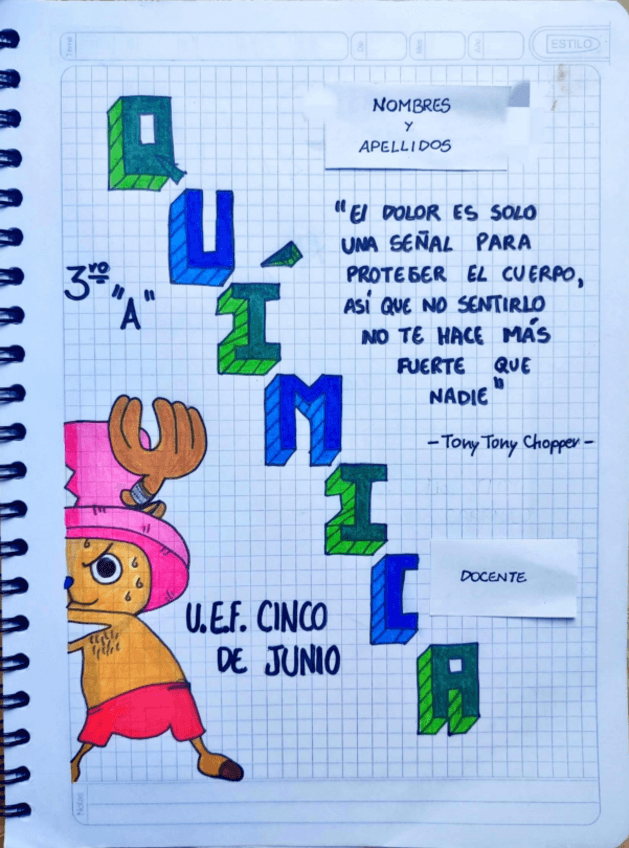 Tema
ESTILO
NOMBRES
Y
APELLIDOS
QUÍMICA
"El DOLOR ES SOLO
UNA SEÑAL PARA
PROTEGER EL CUERPO,
ASÍ QUE NO SENTIRLO
NO TE HACE MÁS
FUERTE QUE
NADIE"
-Tony Tony Chopper-
3ro "A"
DOCENTE
U.E.F. CINCO
DE JUNIO
Nota: